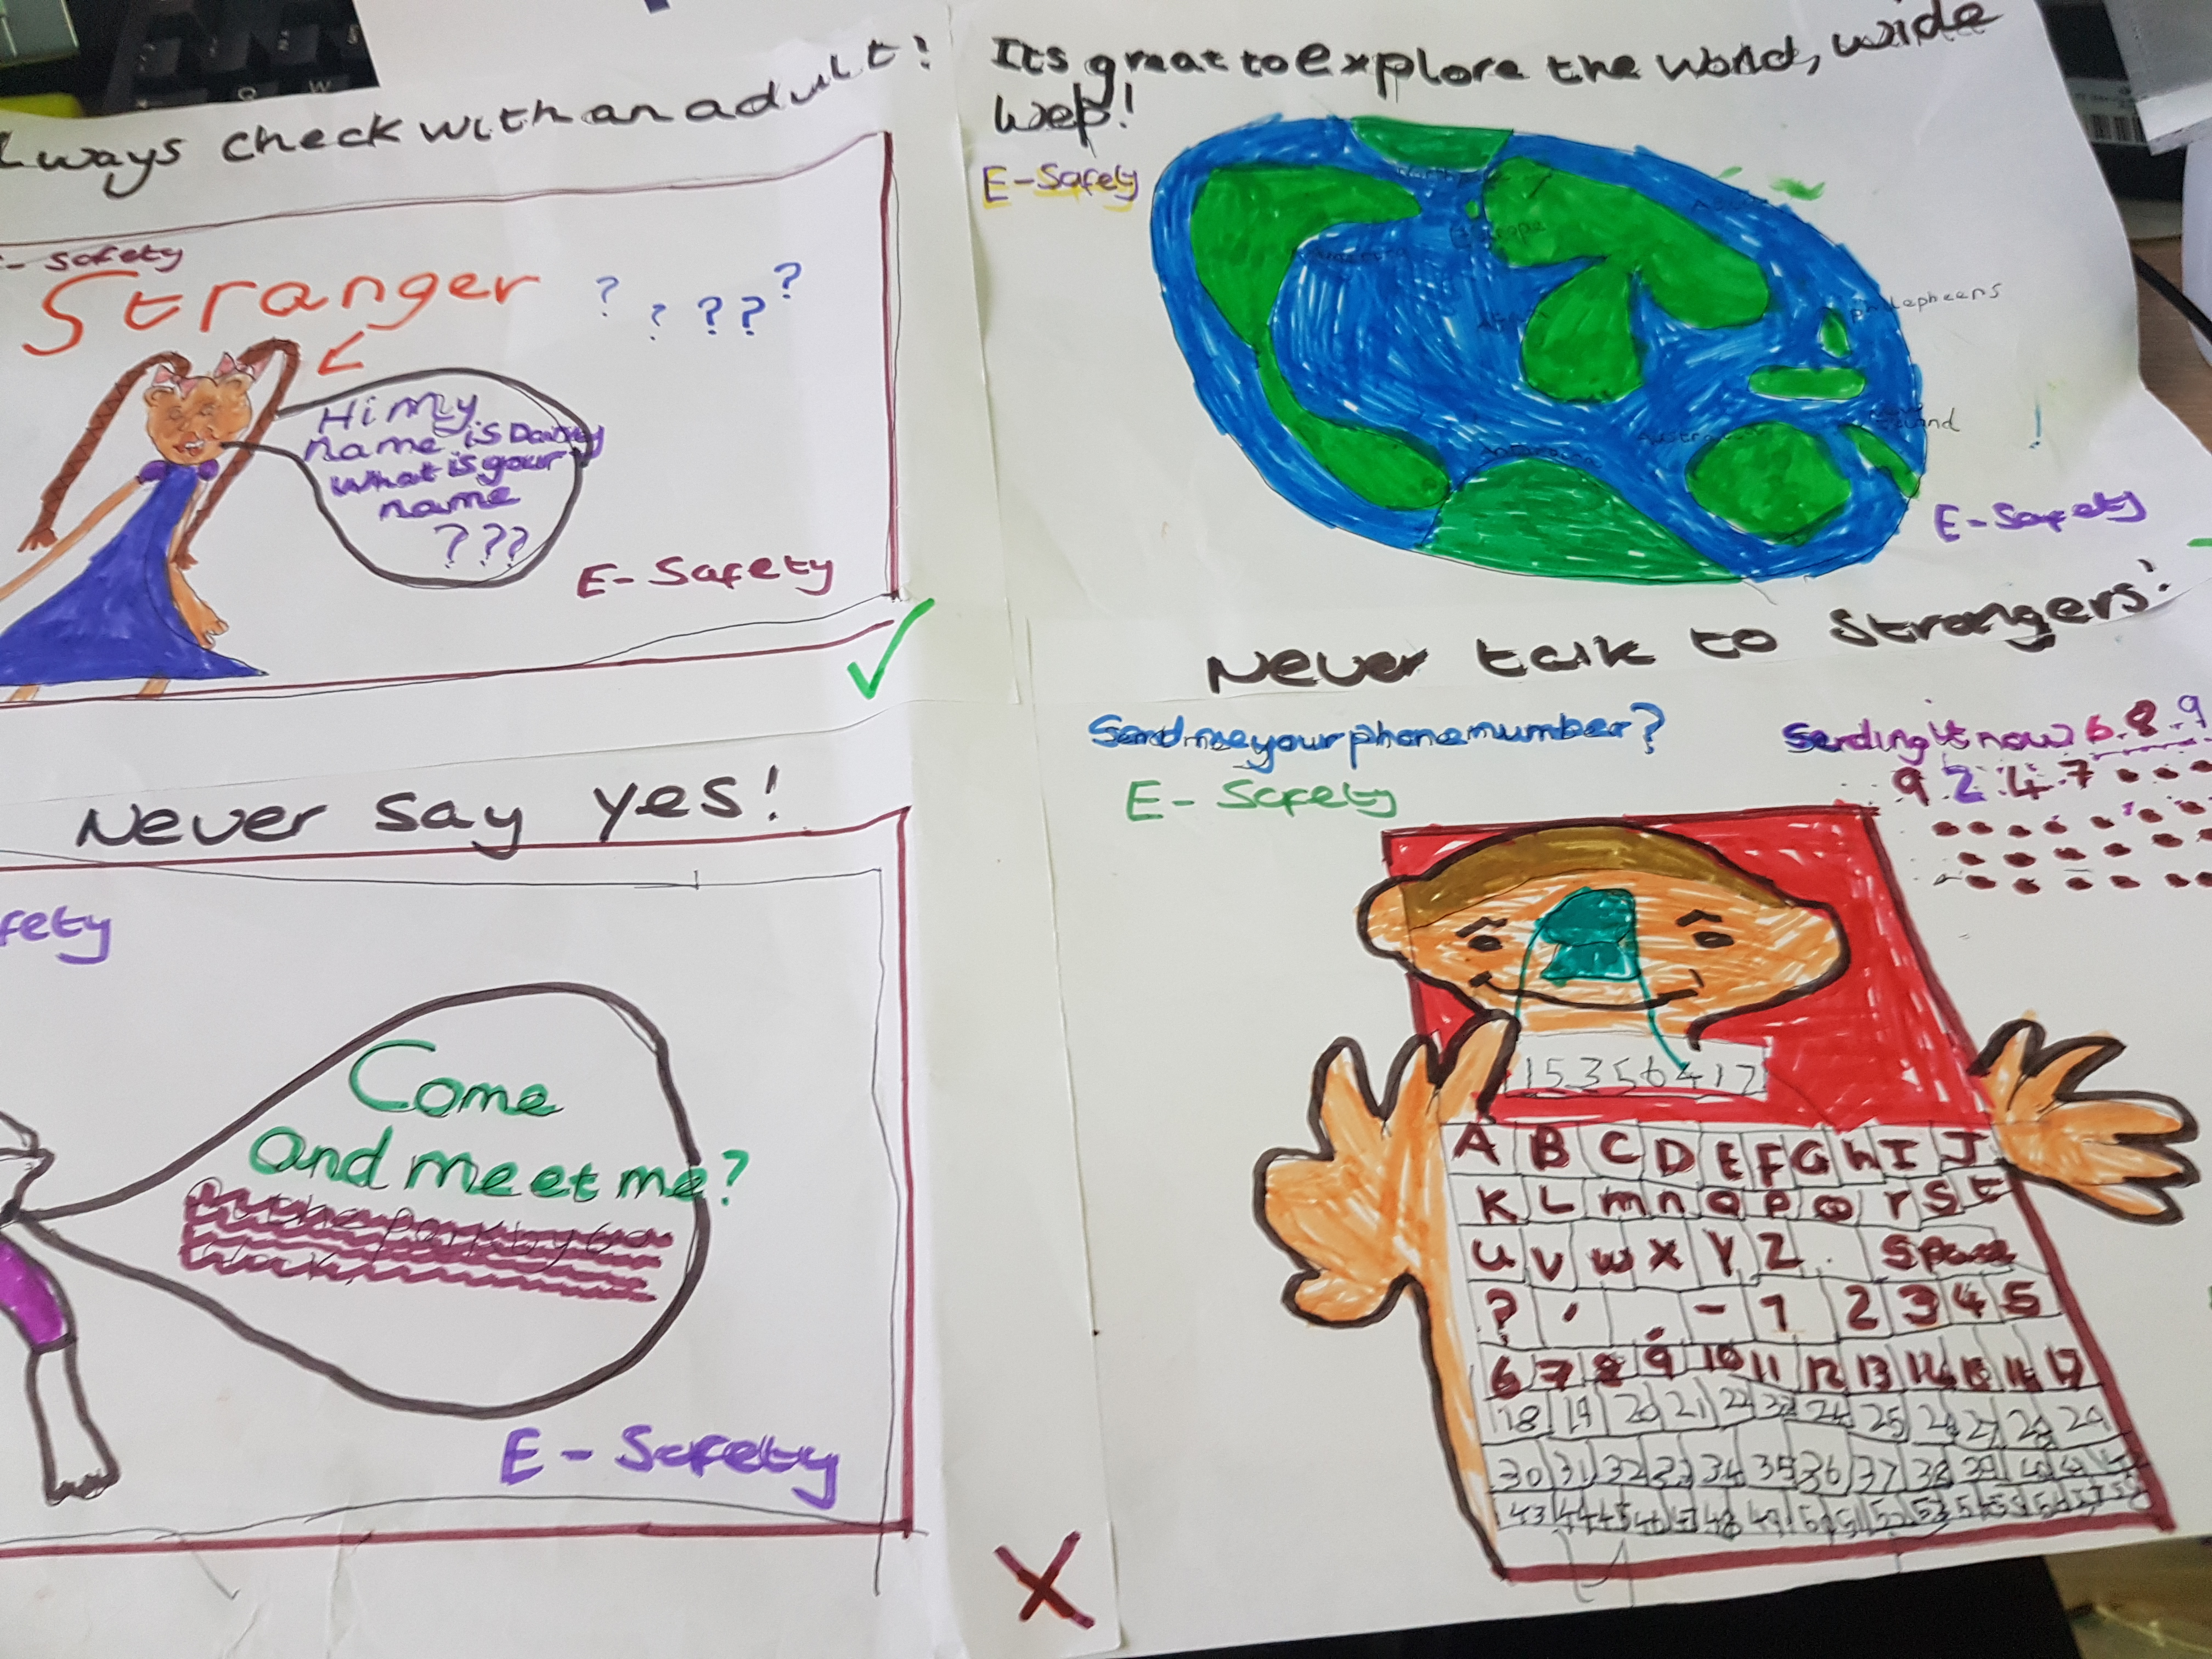 lways check with an adult!
- Safety
Stranger
? ? ? ? ?
Hi my
name is Daisy
What is your
name
???
E-Safety
Its great to explore the world, wide
Web!
E-Safety
Europe
Philepheens
Austra
land
!
E-Safety
Never say yes!
fety
Come
and meet me?
At the park by 6:00
E-Safety
Never talk to Strangers!
Send me your phone number?
Sending it now 6.8.9
9 2 4 7
E-Safety
115356417
A B C D E F G h I J
K L m n o p Q r S t
u v w x y Z . Space
? , . - 1 2 3 4 5
6 7 8 9 10 11 12 13 14 15 16 17
18 19 20 21 22 23 24 25 26 27 28 29
30 31 32 33 34 35 36 37 38 39 40 41 42
43 44 45 46 47 48 49 50 51 52 53 54 55 56 57 58